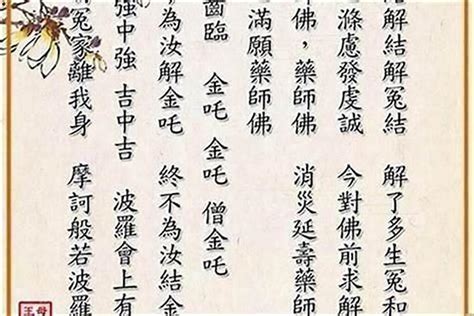 解結解冤結 解了多生冤和
滌慮發虔誠 今對佛前求解
師佛，藥師佛 消災延壽藥師
滿願藥師佛
齒臨 金吒 金吒 僧金吒
不為汝解金吒 終不為汝結金
強中強 吉中吉 波羅會上有
冤家離我身 摩訶般若波羅